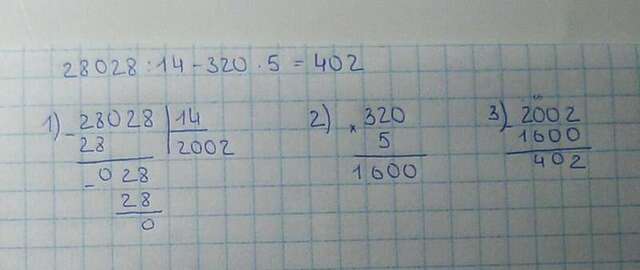 28028 : 14 - 320 · 5 = 402
1) - 28028 | 14
28 | 2002
- 028
28
0
2) × 320
5
1600
3) - 2002
1600
402